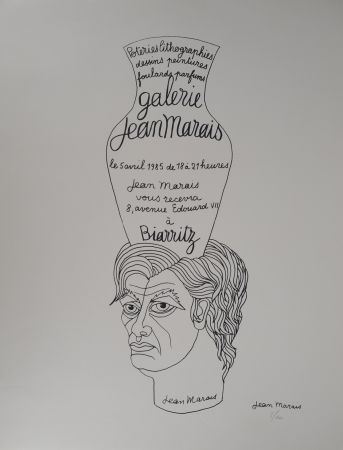 Poteries lithographies
dessins peintures
foulards parfums
galerie
Jean Marais
le 5 avril 1985 de 18 à 21 heures
Jean Marais
vous recevra
8, avenue Edouard VII
à
Biarritz
Jean Marais
Jean Marais